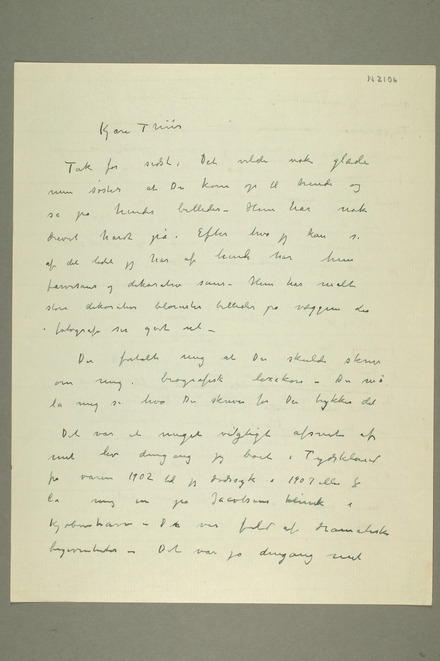 N 2106
Kjære Thiis
Tak for sidst, Det vilde nok glæde
min søster at Du kom op til hende og
så på hendes billeder – Hun har nok
drevet hårdt på. Efter hva jeg kan se
af det lidt jeg har af hende har hun
farvesans og dekorativ sans – Hun har malt
store dekorative blomster billeder på væggen
fotografi ser godt ud –
Du fortalte mig at Du skulde skrive
om mig i biografisk lexikon – Du må
la mig se hva Du skriver før Du trykker det
Det var et meget vigtigt afsnit af
mit liv dengang jeg bodde i Tydskland
fra våren 1902 til jeg dødssyk i 1907 eller 8
la mig in på Jacobsens klinik i
Kjøbenhavn – Den var fuld af dramatiske
begivenheder – Det var jo dengang mit